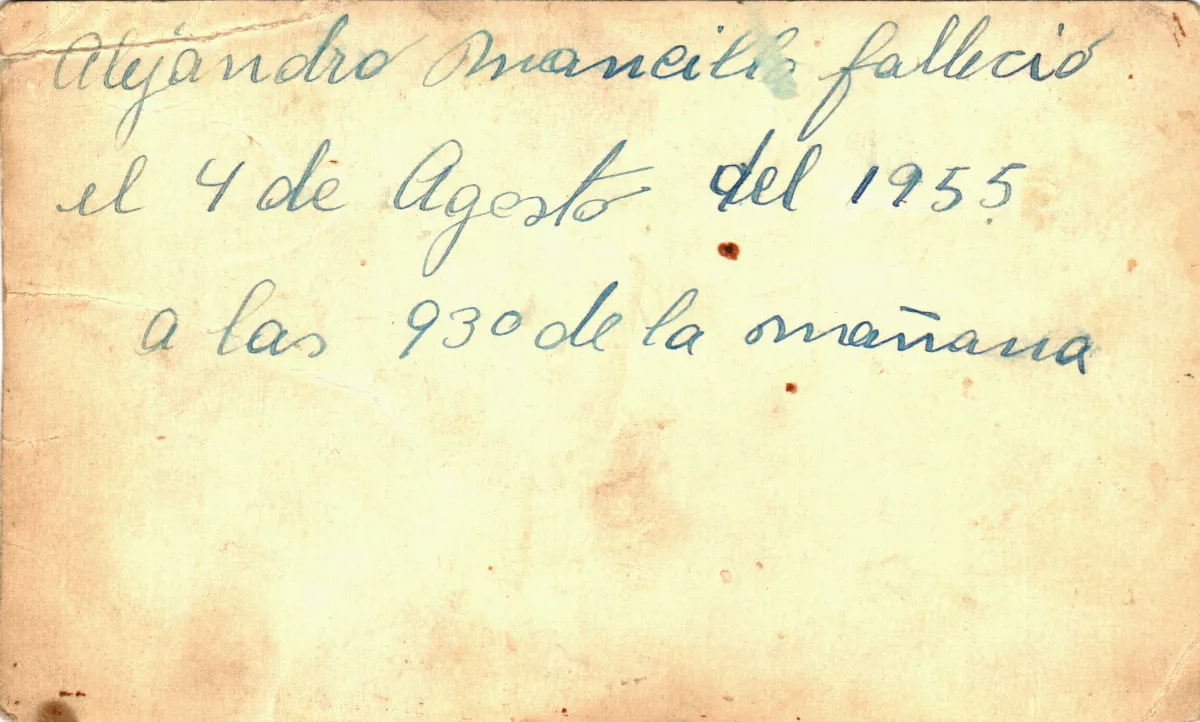 Alejandro Mancilla falleció
el 4 de Agosto del 1955
a las 930 de la mañana